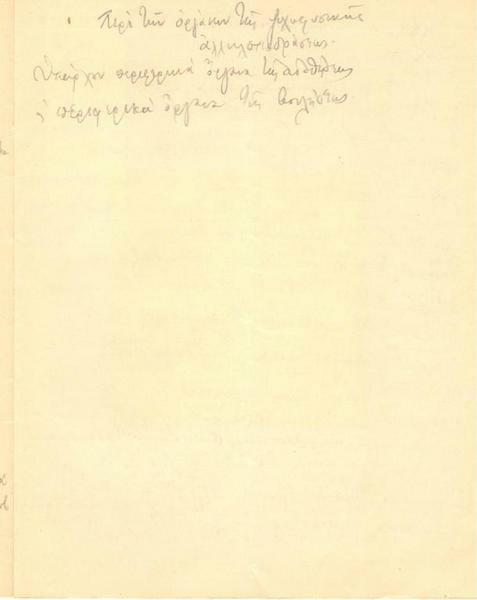 Περὶ τῶν ὀργάνων τῆς ψυχοφυσικῆς
ἀλληλεπιδράσεως.
Ὑπάρχουν περιφερικὰ ὄργανα τῆς αἰσθήσεως
περιφερικὰ ὄργανα τῆς βουλήσεως.